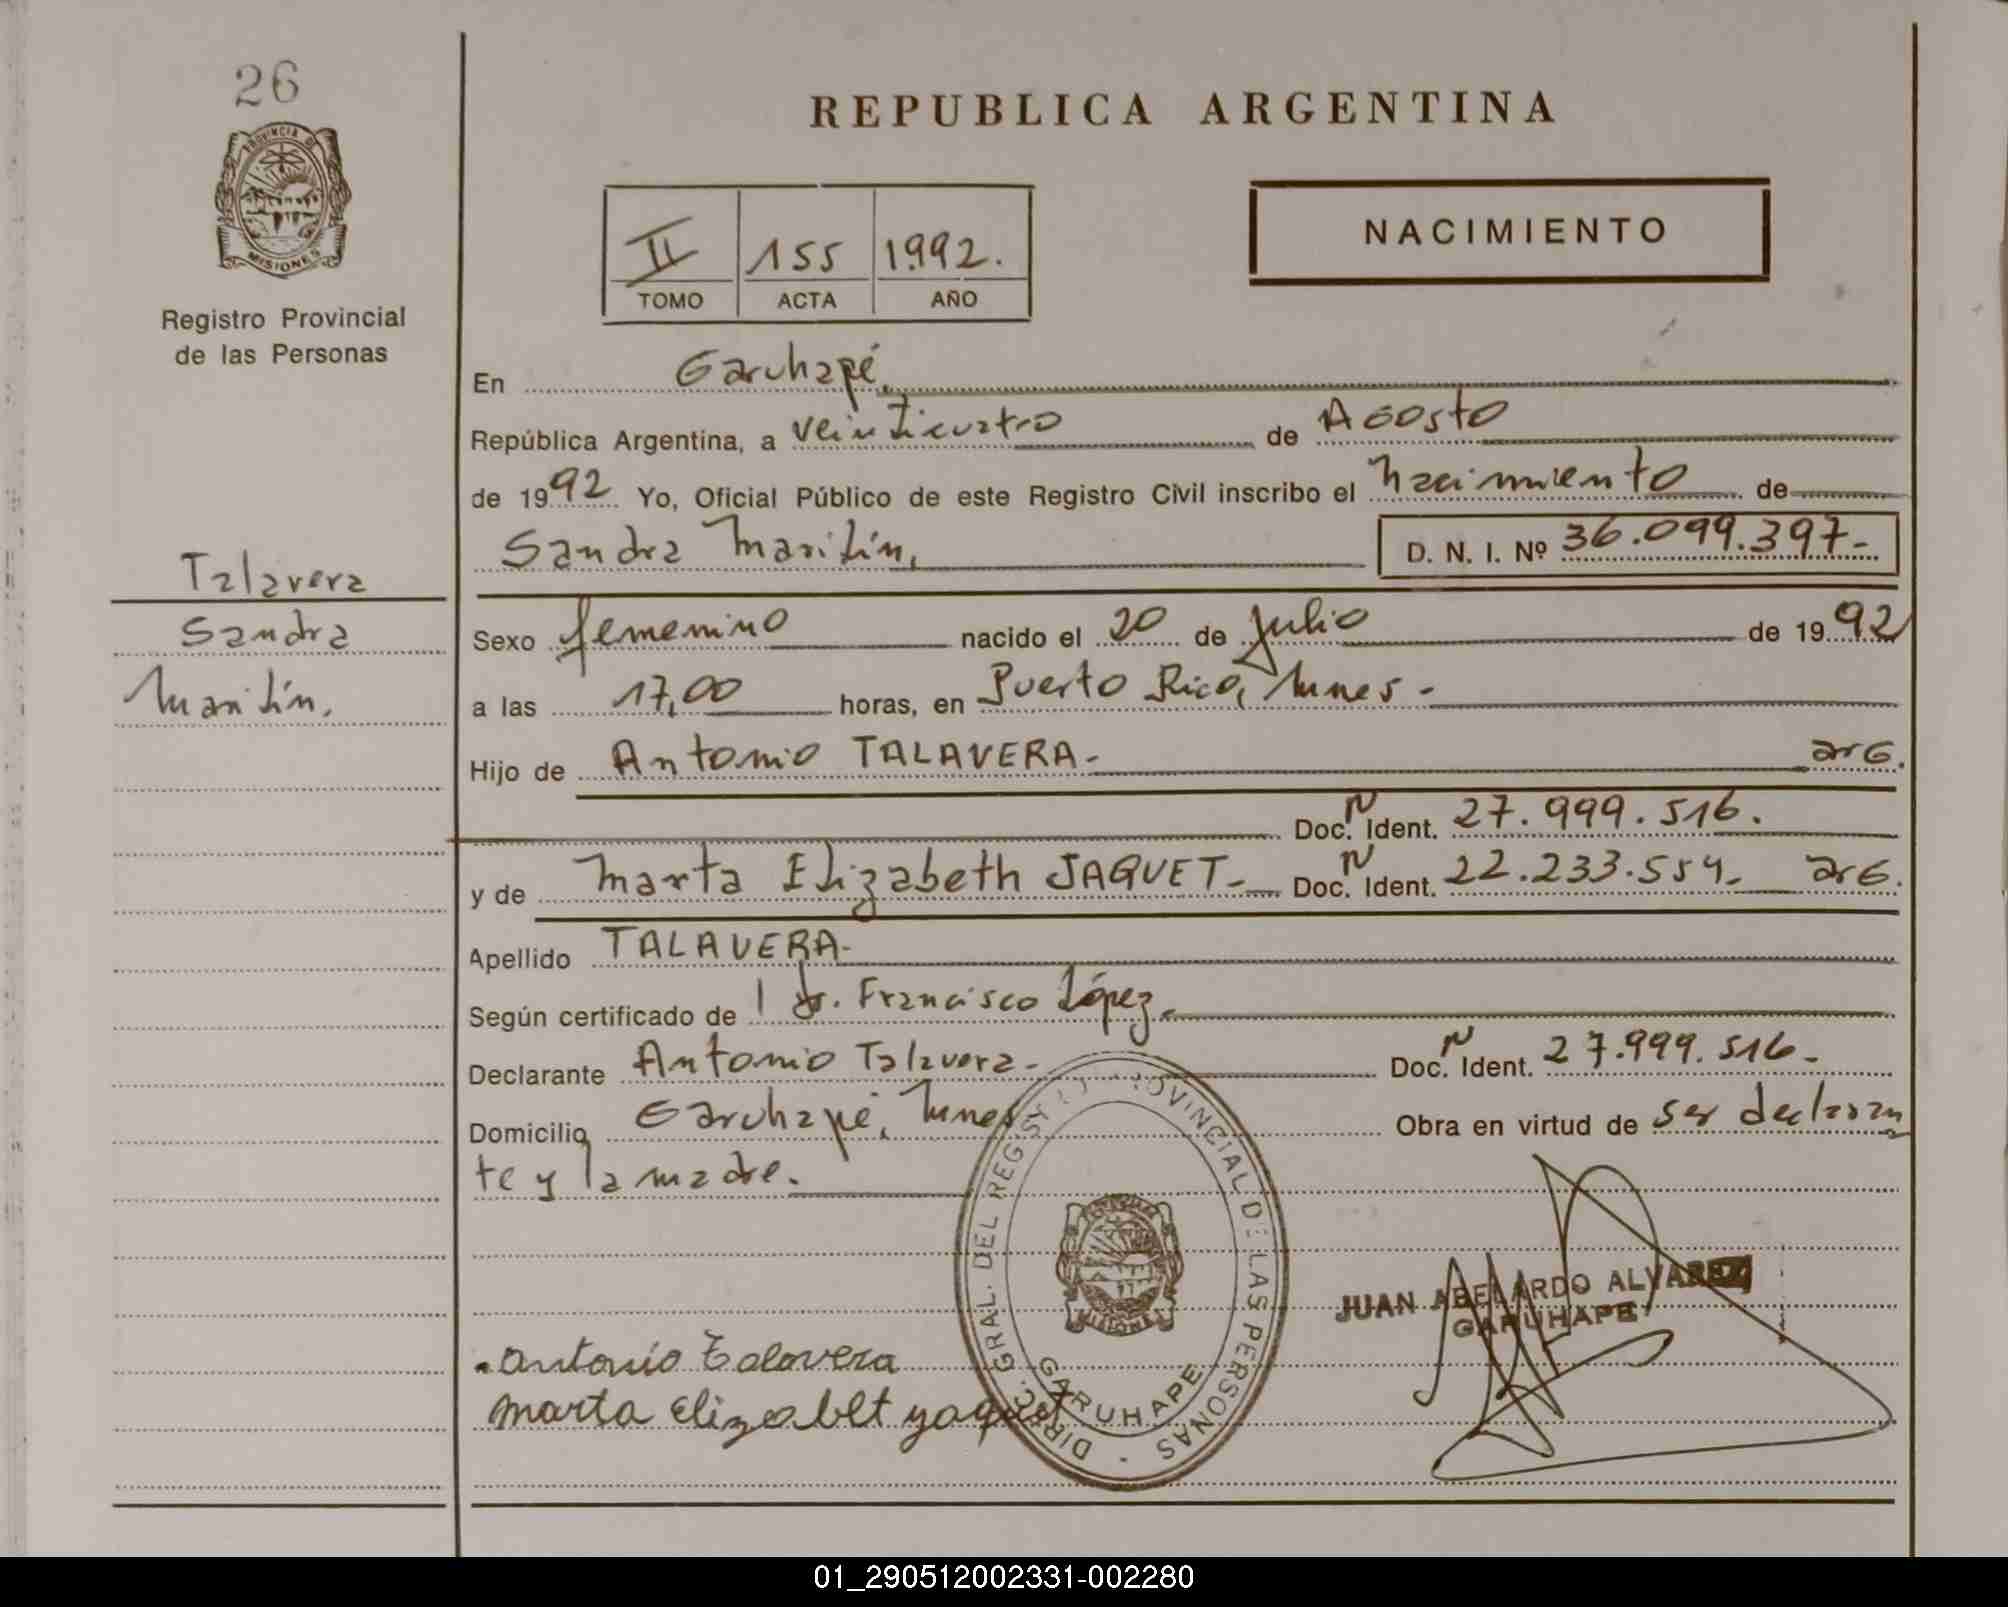 26
PROVINCIA DE
MISIONES
Registro Provincial
de las Personas
REPUBLICA ARGENTINA
NACIMIENTO
II 155 1992.
TOMO ACTA AÑO
En Garuhapé.
República Argentina, a veinticuatro de Agosto
de 1992 Yo, Oficial Público de este Registro Civil inscribo el nacimiento de
Sandra Marilín, D. N. I. Nº 36.099.397-
Talavera
Sandra
Marilín.
Sexo femenino nacido el 20 de Julio de 1992
a las 17,00 horas, en Puerto Rico, Mnes -
Hijo de Antonio TALAVERA- arG.
Doc. N Ident. 27.999.516.
y de Marta Elizabeth JAQUET- Doc. N Ident. 22.233.554- arG.
Apellido TALAVERA-
Según certificado de dr. Francisco López.
Declarante Antonio Talavera- Doc. N Ident. 27.999.516-
Domicilio Garuhapé, Mnes Obra en virtud de ser declaran
te y la madre.
DIREC. GRAL. DEL REGISTRO PROVINCIAL DE LAS PERSONAS -
MISIONES
GARUHAPE
JUAN ABELARDO ALVAREZ
GARUHAPE
Antonio Talavera
Marta elizabet yaquet
01_290512002331-002280